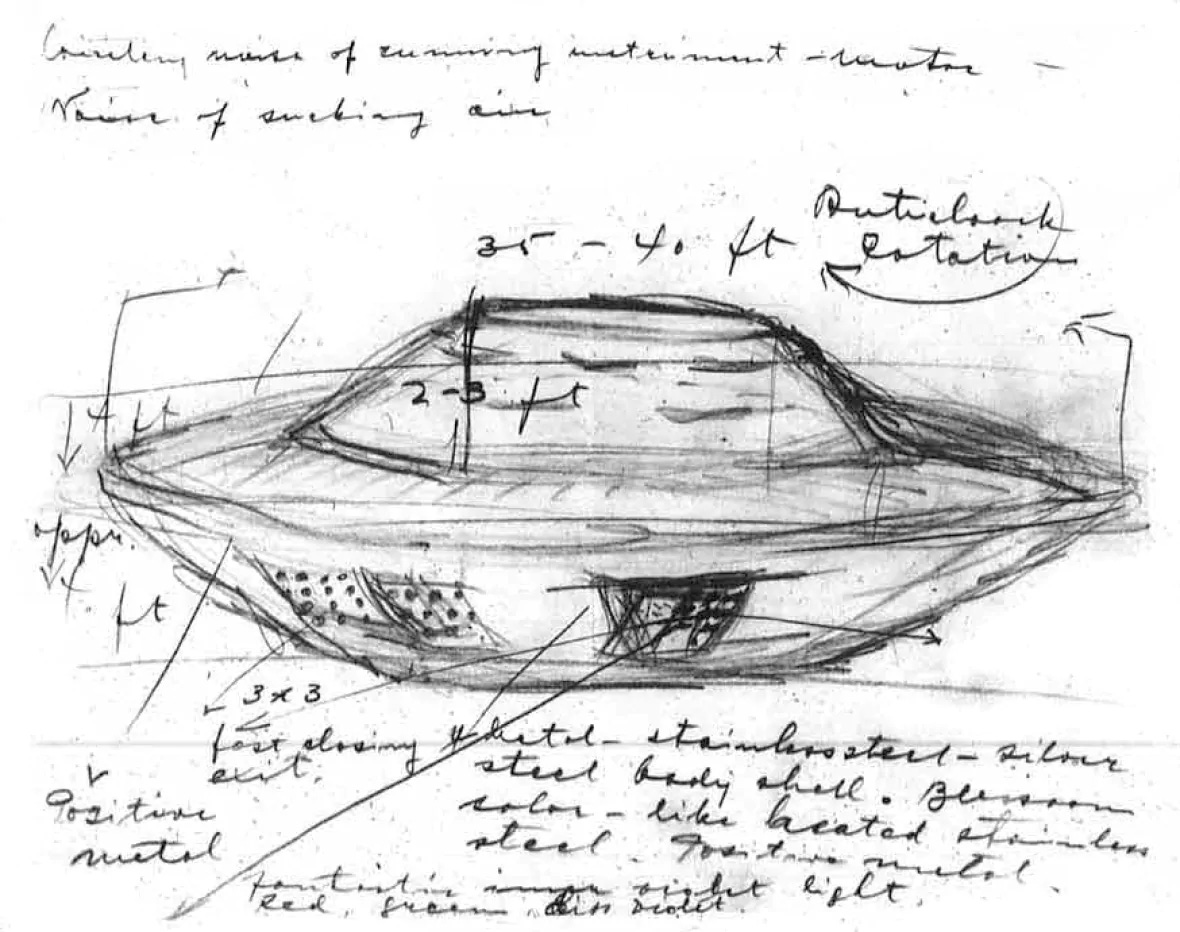 noise of running instrument - motor -
Noise of sucking air
Anticlock
35 - 40 ft
Rotation
2-3 ft
4 ft
appr.
4 ft
3 x 3
fast closing
exit.
metal - stainless steel - silver
steel body shell.
color - like heated stainless
steel. Positive metal.
Positive
metal
fantastic inner violet light.
Red, green, violet.